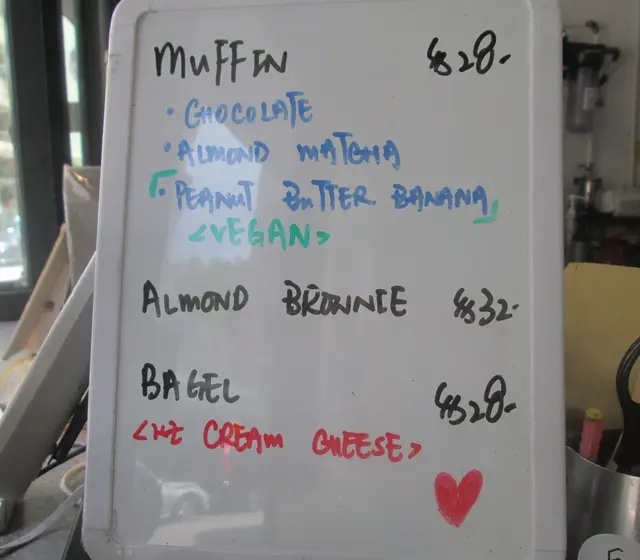 MUFFIN $28-
• CHOCOLATE
• ALMOND MATCHA
「• PEANUT BUTTER BANANA」
<VEGAN>
ALMOND BROWNIE $32-
BAGEL $28-
CREAM CHEESE>